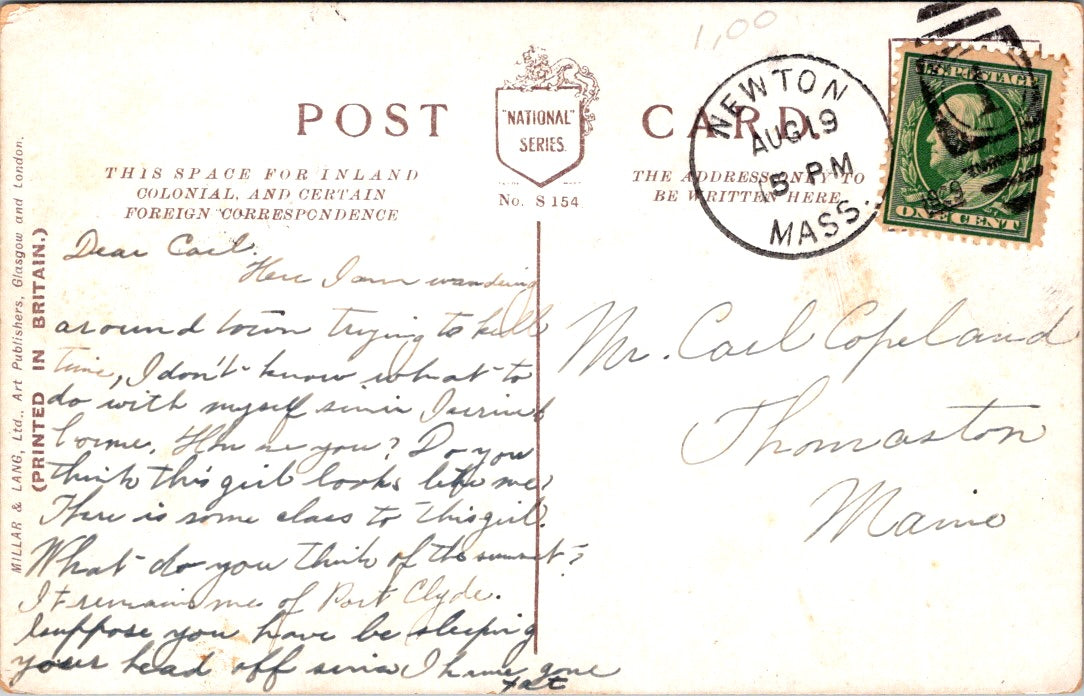 1,00
POST CARD.
"NATIONAL"
SERIES.
No. S 154
THIS SPACE FOR INLAND
COLONIAL, AND CERTAIN
FOREIGN CORRESPONDENCE
THE ADDRESS ONLY TO
BE WRITTEN HERE
NEWTON
AUG 19
5 - PM
1909
MASS.
U.S. POSTAGE
ONE CENT
MILLAR & LANG, Ltd., Art Publishers, Glasgow and London.
(PRINTED IN BRITAIN.)
Dear Carl.
Here I am wandering
around town trying to kill
time, I don't know what to
do with myself since I arrived
home. How are you? Do you
think this girl looks like me?
There is some class to this girl.
What do you think of the sunset?
It remains me of Port Clyde.
I suppose you have be sleeping
your head off since I have gone
Mr. Carl Copeland
Thomaston
Maine